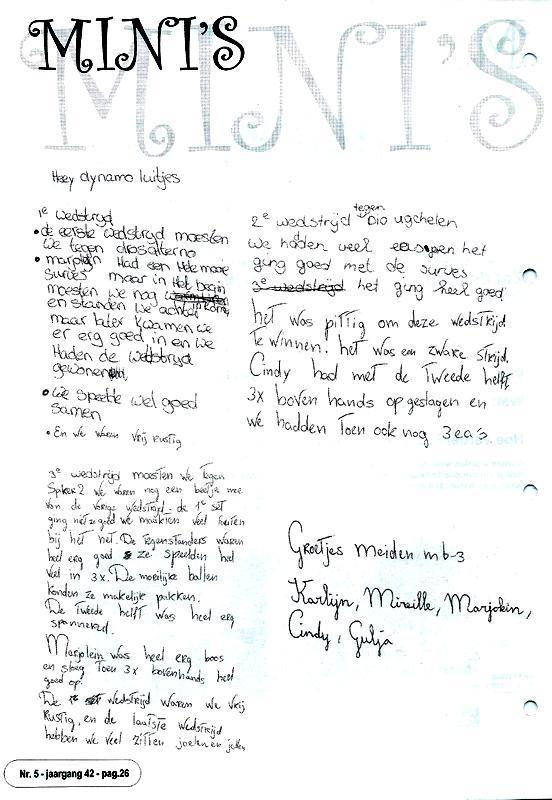 MINI'S
MINI'S
Heey dynamo luitjes
1e wedstrijd
• de eerste wedstrijd moesten
we tegen
• marjolijn Had een Hele mooie
surves maar in Het begin
moesten we nog
en standen we achter
maar later kwamen we
er erg goed in en we
Haden de wedstrijd
gewonen
• We speelde wel goed
samen
• En we waren vrij rustig
2e wedstrijd tegen Dio ugchelen
we hadden veel easopen het
ging goed met de surves
3e wedstrijd het ging heel goed
het was pittig om deze wedstrijd
te winnen. het was een zware strijd.
Cindy had met de Tweede helft
3x boven hands op geslagen en
we hadden Toen ook nog 3 ea's.
3e wedstrijd moesten we Tegen
Spiker 2 we waren nog een beetje moe
van de vorige wedstrijd. de 1e set
ging niet zo goed we maakten veel fouten
bij het net. De Tegenstanders waren
heel erg goed ze speelden heel
veel in 3x. De moeilijke ballen
konden ze makelijk pakken.
De Tweede helft was heel erg
spannend.
Marjolein was heel erg boos
en sloeg Toen 3x bovenhands heel
goed op.
De wedstrijd waren we vrij
Rustig, en de laatste wedstrijd
hebben we veel zitten joelen en
Groetjes meiden mb-3
Karlijn, Mireille, Marjolein,
Cindy, Gulja
Nr. 5 - jaargang 42 - pag.26